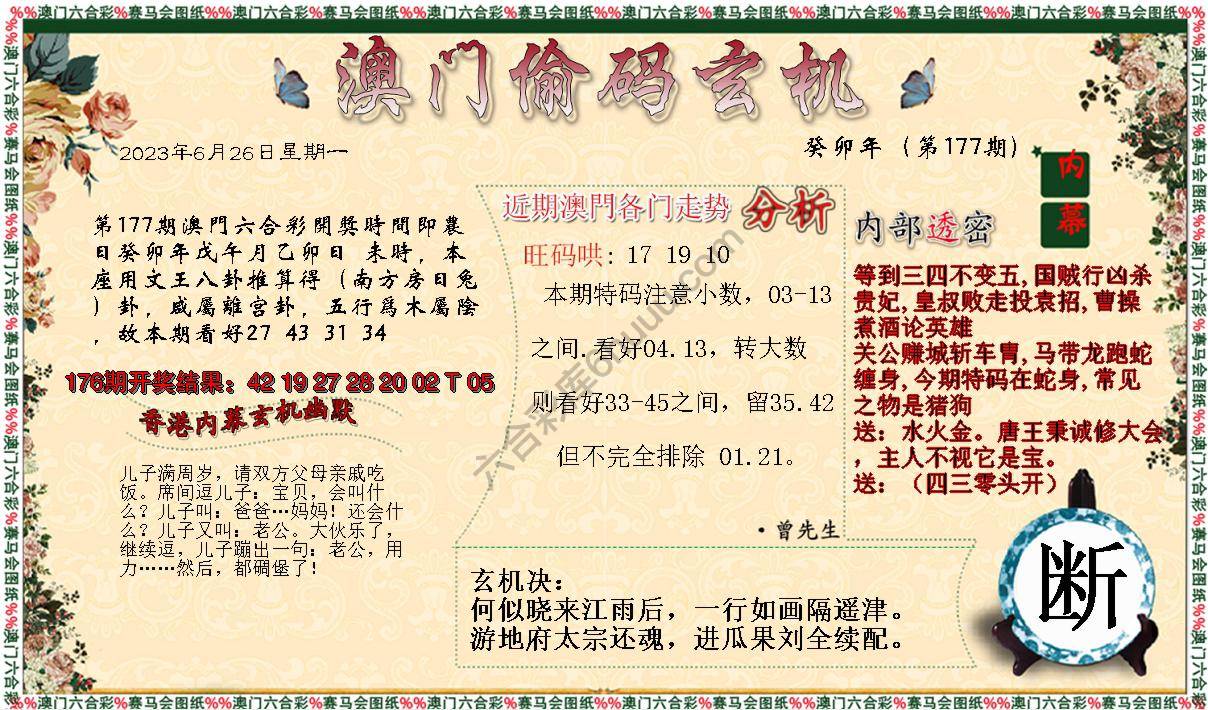 %%澳门六合彩%赛马会图纸%%澳门六合彩%赛马会图纸%%澳门六合彩%赛马会图纸%%澳门六合彩%赛马会图纸%%澳门六合彩%赛马会图纸%%澳门六合彩%赛马会图纸%%
澳门偷码玄机
2023年6月26日星期一
癸卯年（第177期）
内幕
第177期澳門六合彩開獎時間即農
日癸卯年戊午月乙卯日 未時，本
座用文王八卦推算得（南方房日兔
）卦，威屬離宮卦，五行爲木屬陰
，故本期看好27 43 31 34
176期开奖结果：42 19 27 28 20 02 T 05
香港内幕玄机幽默
儿子满周岁，请双方父母亲戚吃
饭。席间逗儿子：宝贝，会叫什
么？儿子叫：爸爸…妈妈！还会什
么？儿子又叫：老公。大伙乐了，
继续逗，儿子蹦出一句：老公，用
力……然后，都碉堡了！
近期澳門各门走势 分析
旺码哄: 17 19 10
本期特码注意小数，03-13
之间.看好04.13，转大数
则看好33-45之间，留35.42
但不完全排除 01.21。
·曾先生
内部透密
等到三四不变五,国贼行凶杀
贵妃,皇叔败走投袁招,曹操
煮酒论英雄
关公赚城斩车胄,马带龙跑蛇
缠身,今期特码在蛇身,常见
之物是猪狗
送：水火金。唐王秉诚修大会
，主人不视它是宝。
送：（四三零头开）
玄机决：
何似晓来江雨后，一行如画隔遥津。
游地府太宗还魂，进瓜果刘全续配。
断
%%澳门六合彩%赛马会图纸%%澳门六合彩%赛马会图纸%%澳门六合彩%赛马会图纸%%澳门六合彩%赛马会图纸%%澳门六合彩%赛马会图纸%%澳门六合彩%赛马会图纸%%